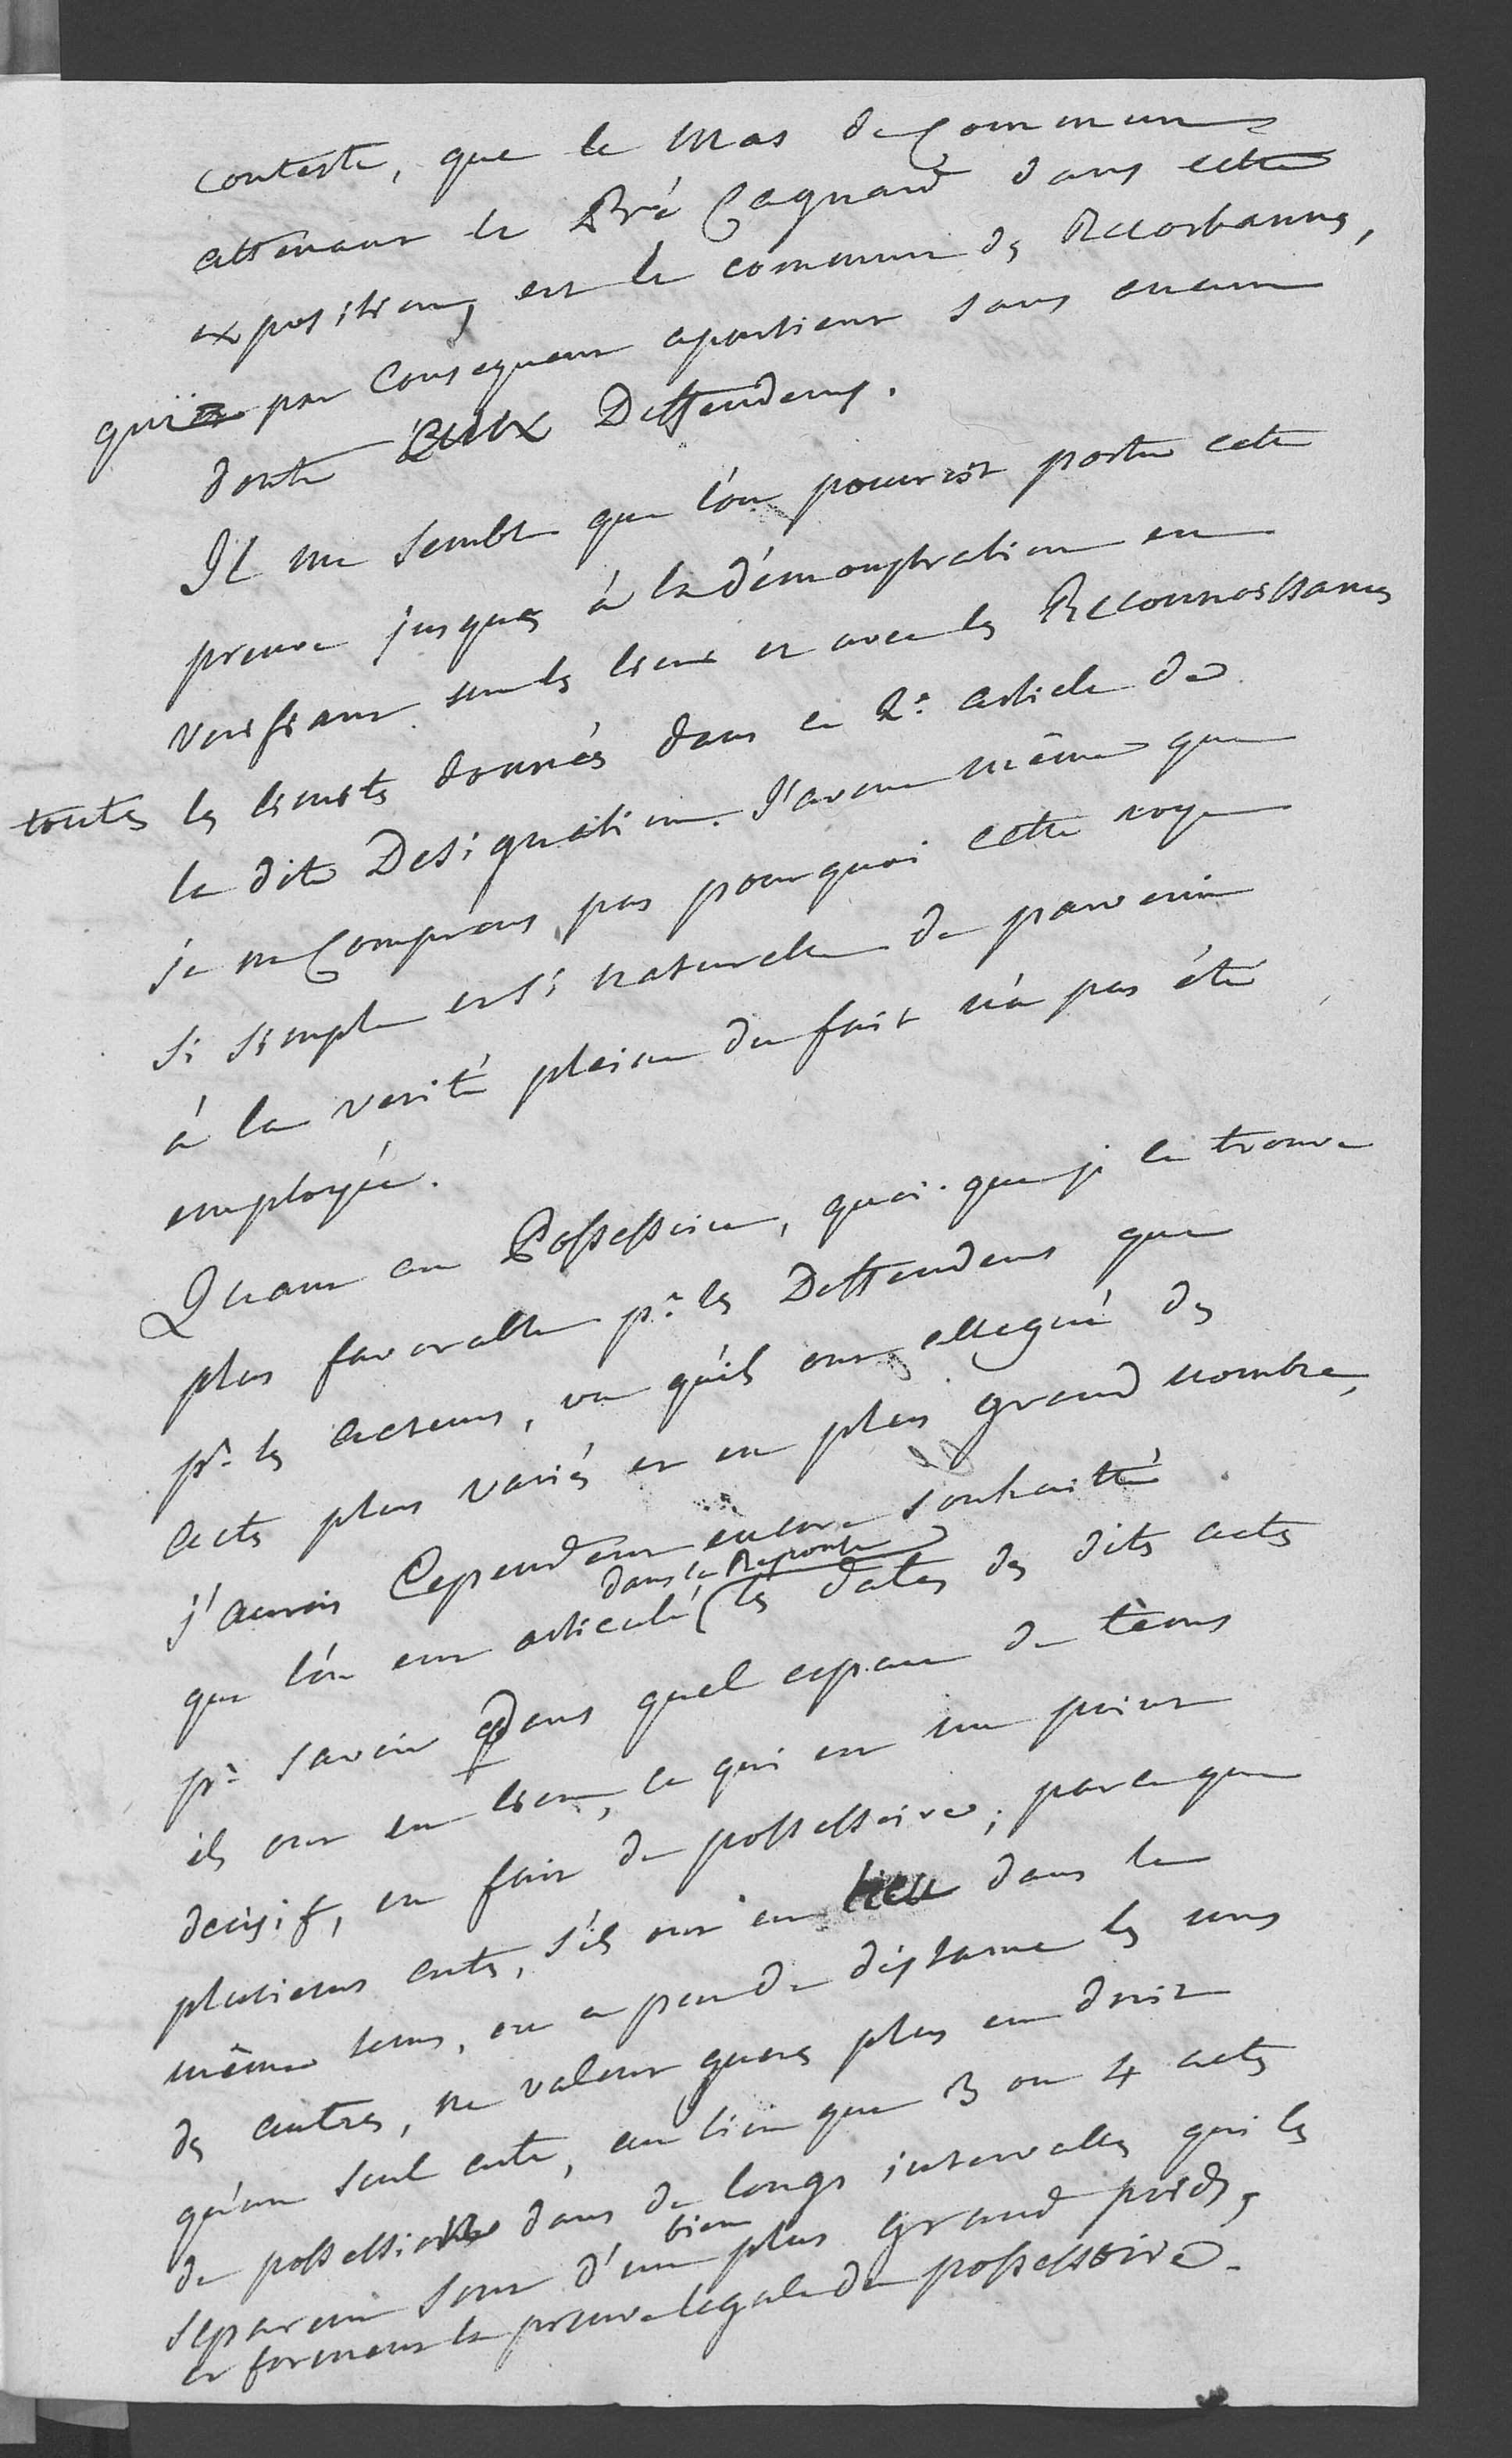 conteste, que le Mas de Commun
attenant le Pré Cagnard dans cette
exposition, est le commun de Recorbannes,
qui par consequent apartient sans aucun
doute aux Deffendeurs.
Il me semble que l'on pourroit porter cette
preuve jusques à la démonstration en
verifiant sur les lieux et avec les Reconnoissances
toutes les limites donnés dans ce 2e. article de
la dite Designation. J'avoue même que
je ne comprens pas pourquoi cette voye
si simple et si naturelle de parvenir
à la verité pleine du fait n'a pas été
employée.
Quant au Possessoire, quoi-que je le trouve
plus favorable pr. les Deffendeurs que
pr. les acteurs, vu qu'ils ont allegué des
actes plus variés et en plus grand nombre,
j'aurois cependant encore souhaitté
dans la Reponse
que l'on eut articulé les dates des dits actes
pr. savoir dans quel espace de tems
ils ont eu lieu, ce qui est un point
decisif, en fait de possessoire; parce que
plusieurs actes, s'ils ont eu lieu dans le
même tems, ou a peu de distance les uns
des autres, ne valent gueres plus en droit
qu'un seul acte, au lieu que 3 ou 4 actes
de possession dans de longs intervalles qui les
bien
separent sont d'un plus grand poids,
et forment la preuve legale du possessoire.